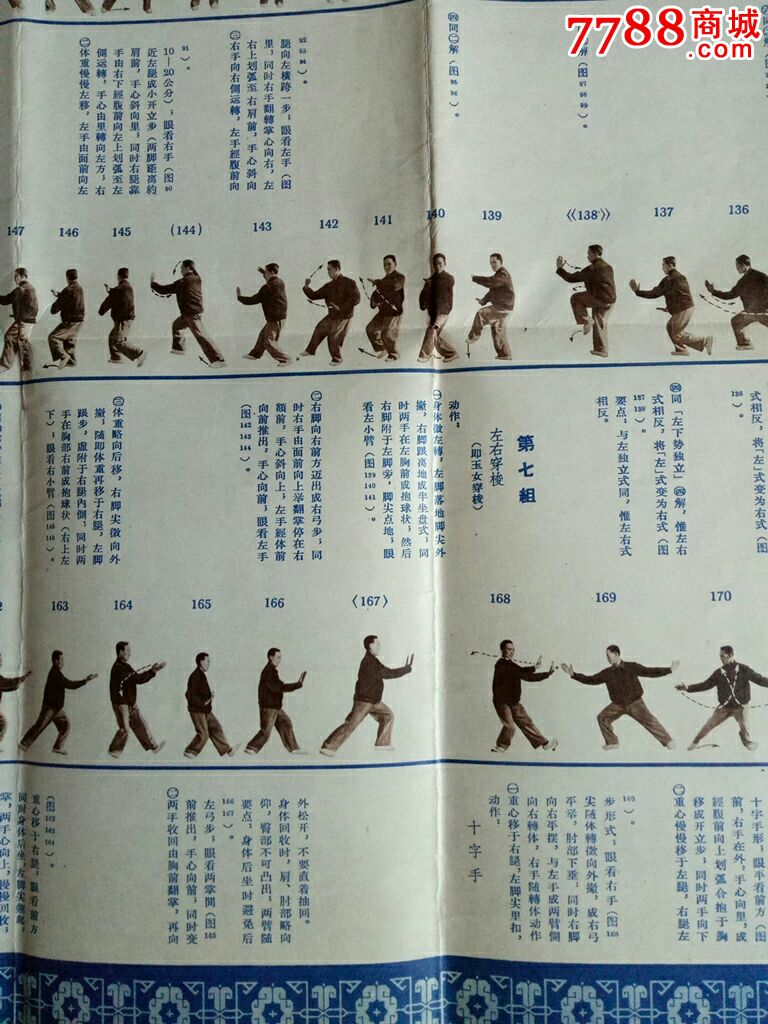 7788商城
com
㊁体重慢慢左移,左手由面前向左
側运轉,手心由里轉向左方;右
手由右下經腹前向左上划弧至左
肩前,手心斜向里;同時右腿靠
近左腿成小开立步(两脚距离約
10—20公分);眼看右手(图 90
91)。
㊂右手向右側运轉,左手經腹前向
右上划弧至右肩前,手心斜向
里;同時右手翻轉掌心向右,左
腿向左橫跨一步;眼看左手(图
92 93 94)。
㊃同㊁解(图 95 96)。
解(图 97 98 99)。
147 146 145 (144) 143 142 141 140 139 《138》 137 136
㊂体重略向后移,右脚尖微向外
撇;随即体重再移于右腿,左脚
跟步,虚附于右腿內側;同時两
手在胸部右前成抱球状(右上左
下);眼看右小臂(图145 146)。
㊁右脚向右前方迈出成右弓步;同
時右手由面前向上举翻掌停在右
額前,手心斜向上;左手經体前
向前推出,手心向前;眼看左手
(图142 143 144)。
第七組
左右穿梭
(即玉女穿梭)
动作:
㊀身体微左轉,左脚落地脚尖外
撇,右脚跟离地成半坐盘式;同
時两手在左胸前成抱球状;然后
右脚附于左脚旁,脚尖点地;眼
看左小臂(图139 140 141)。
㊃同「左下势独立」㊃解,惟左右
式相反,将「左」式变为右式(图
137 138)。
要点:与左独立式同,惟左右式
相反。
式相反,将「左」式变为右式(图
136)。
163 164 165 166 〈167〉 168 169 170
掌,两手心向上,慢慢回收;
同時身体后坐;左脚尖翹起,
重心移于右腿,眼看前方
(图162 163 164)。
㊁两手收回由胸前翻掌,再向
前推出,手心向前;同時变
左弓步;眼看两掌間(图165
166 167)。
要点:身体后坐时避免后
仰,臀部不可凸出;两臂随
身体回收时,肩、肘部略向
外松开,不要直着抽回。
十字手
动作:
㊀重心移于右腿,左脚尖里扣,
向右轉体,右手随轉体动作
向右平摆,与左手成两臂侧
平举,肘部下垂;同時右脚
尖随体轉微向外撇,成右弓
步形式;眼看右手(图168
169)。
㊁重心慢慢移于左腿,右腿左
移成开立步;同時两手向下
經腹前向上划弧合抱于胸
前,右手在外,手心向里,成
十字手形;眼平看前方(图